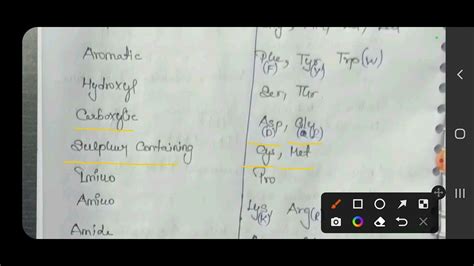 Aromatic Phe, Tyr, Trp (W)
(F) (Y)
Hydroxyl Ser, Thr
Carboxylic Asp, Gly
(D)
Sulphur Containing Cys, Met
Imino Pro
Amino Lys, Arg
(K)
Amide